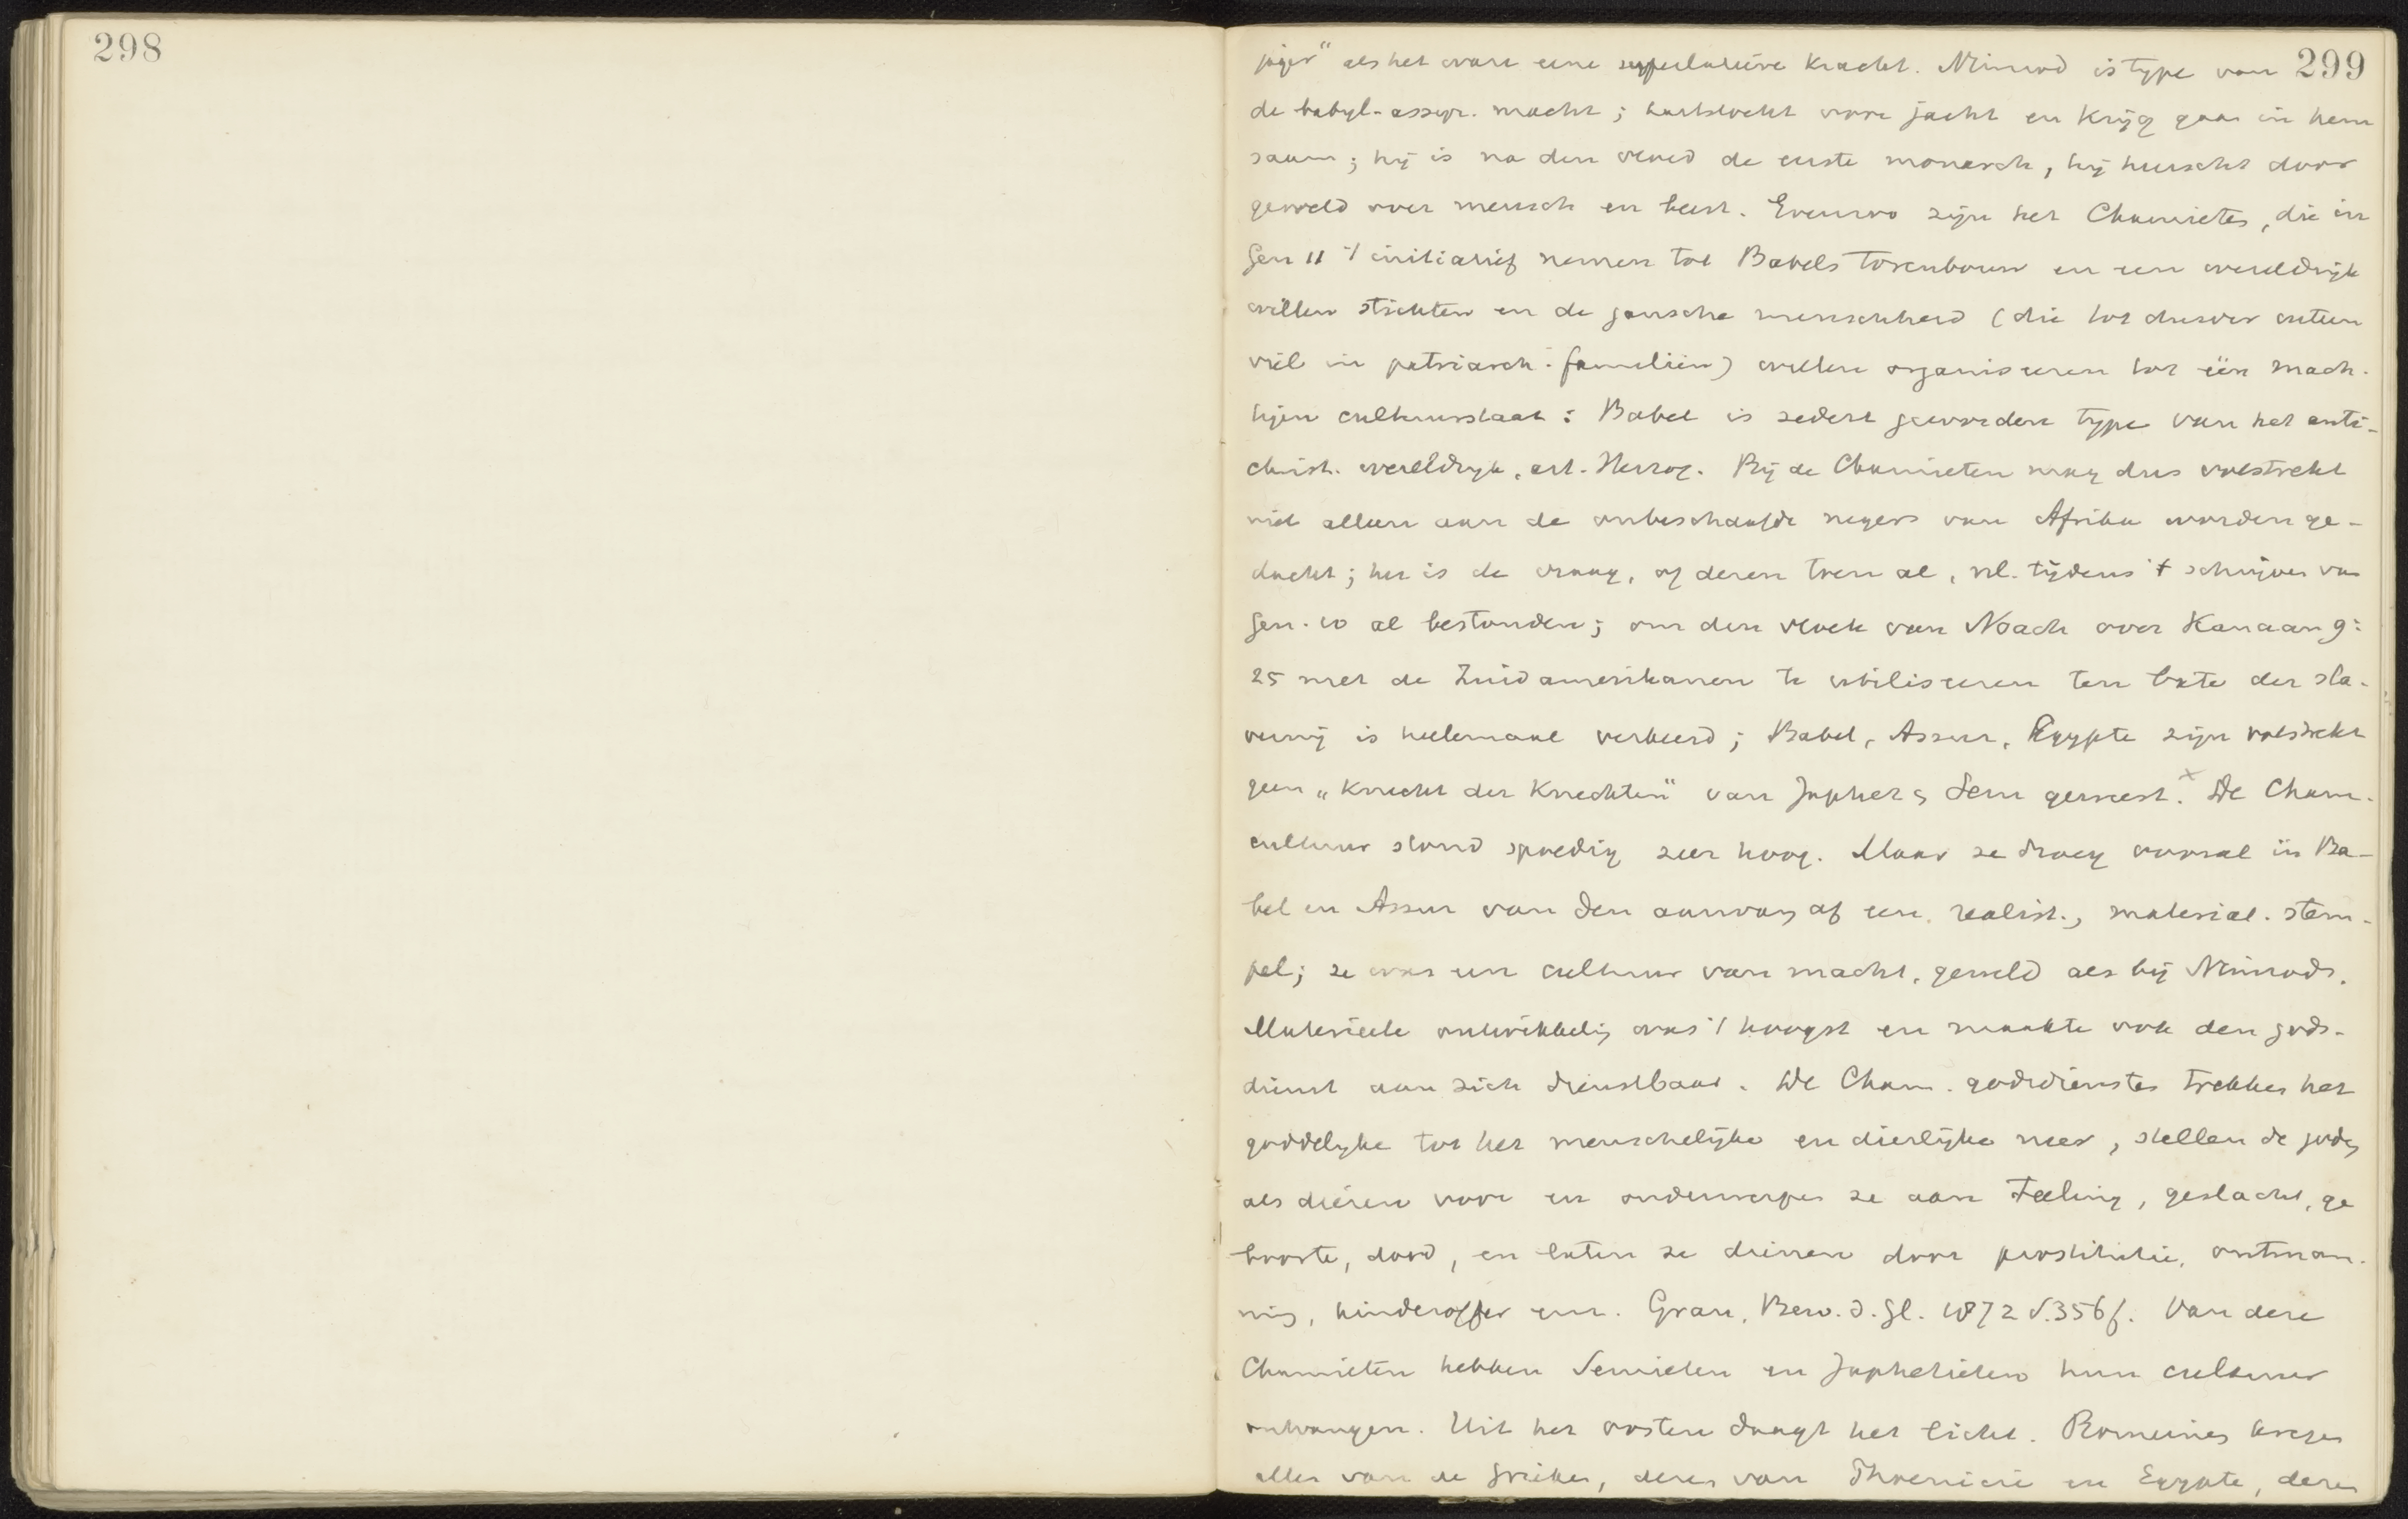 298
299
jager" als het ware eene superlatieve kracht. Nimrod is type van
de babyl-assyr. macht; hartstocht voor jacht en krijg gaan in hem
saam; hij is na den vloed de eerste monarch, hij heerscht door
geweld over mensch en beest. Evenzoo zijn het Chamieten, die in
Gen 11 't initiatief nemen tot Babels torenbouw en een wereldrijk
willen stichten en de gansche menschheid (die tot dusver uiteen
viel in patriarch. familiën) willen organiseeren tot één mach-
tigen cultuurstaat: Babel is sedert geworden type van het anti-
christ. wereldrijk, art. Herzog. Bij de Chamieten mag dus volstrekt
niet alleen aan de onbeschaafde negers van Afrika worden ge-
dacht; het is de vraag, of dezen toen al, nl. tijdens 't schrijven van
Gen. 10 al bestonden; om den vloek van Noach over Kanaan 9:
25 met de Zuidamerikanen te utiliseeren ten bate der sla-
vernij is heelemaal verkeerd; Babel, Assur, Egypte zijn volstrekt
geen „knecht der knechten" van Japhet & Sem geweest. x De Cham.
cultuur stond spoedig zeer hoog. Maar ze droeg vooral in Ba-
bel en Assur van den aanvang af een realist., material. stem-
pel; ze was een cultuur van macht, geweld als bij Nimrod.
Materieele ontwikkeling was 't hoogst en maakte ook den gods-
dienst aan zich dienstbaar. De Cham. godsdiensten trekken het
goddelijke tot het menschelijke en dierlijke neer, stellen de goden
als dieren voor en onderwerpen ze aan teeling, geslacht, ge
boorte, dood, en laten ze dienen door prostitutie, ontman-
ning, kinderoffer enz. Grau, Bew. d. Gl. 1872 S. 356 f. Van deze
Chamieten hebben Semieten en Japhetieten hun cultuur
ontvangen. Uit het oosten daagt het licht. Romeinen kregen
alles van de Grieken, dezen van Phoenicië en Egypte, deze